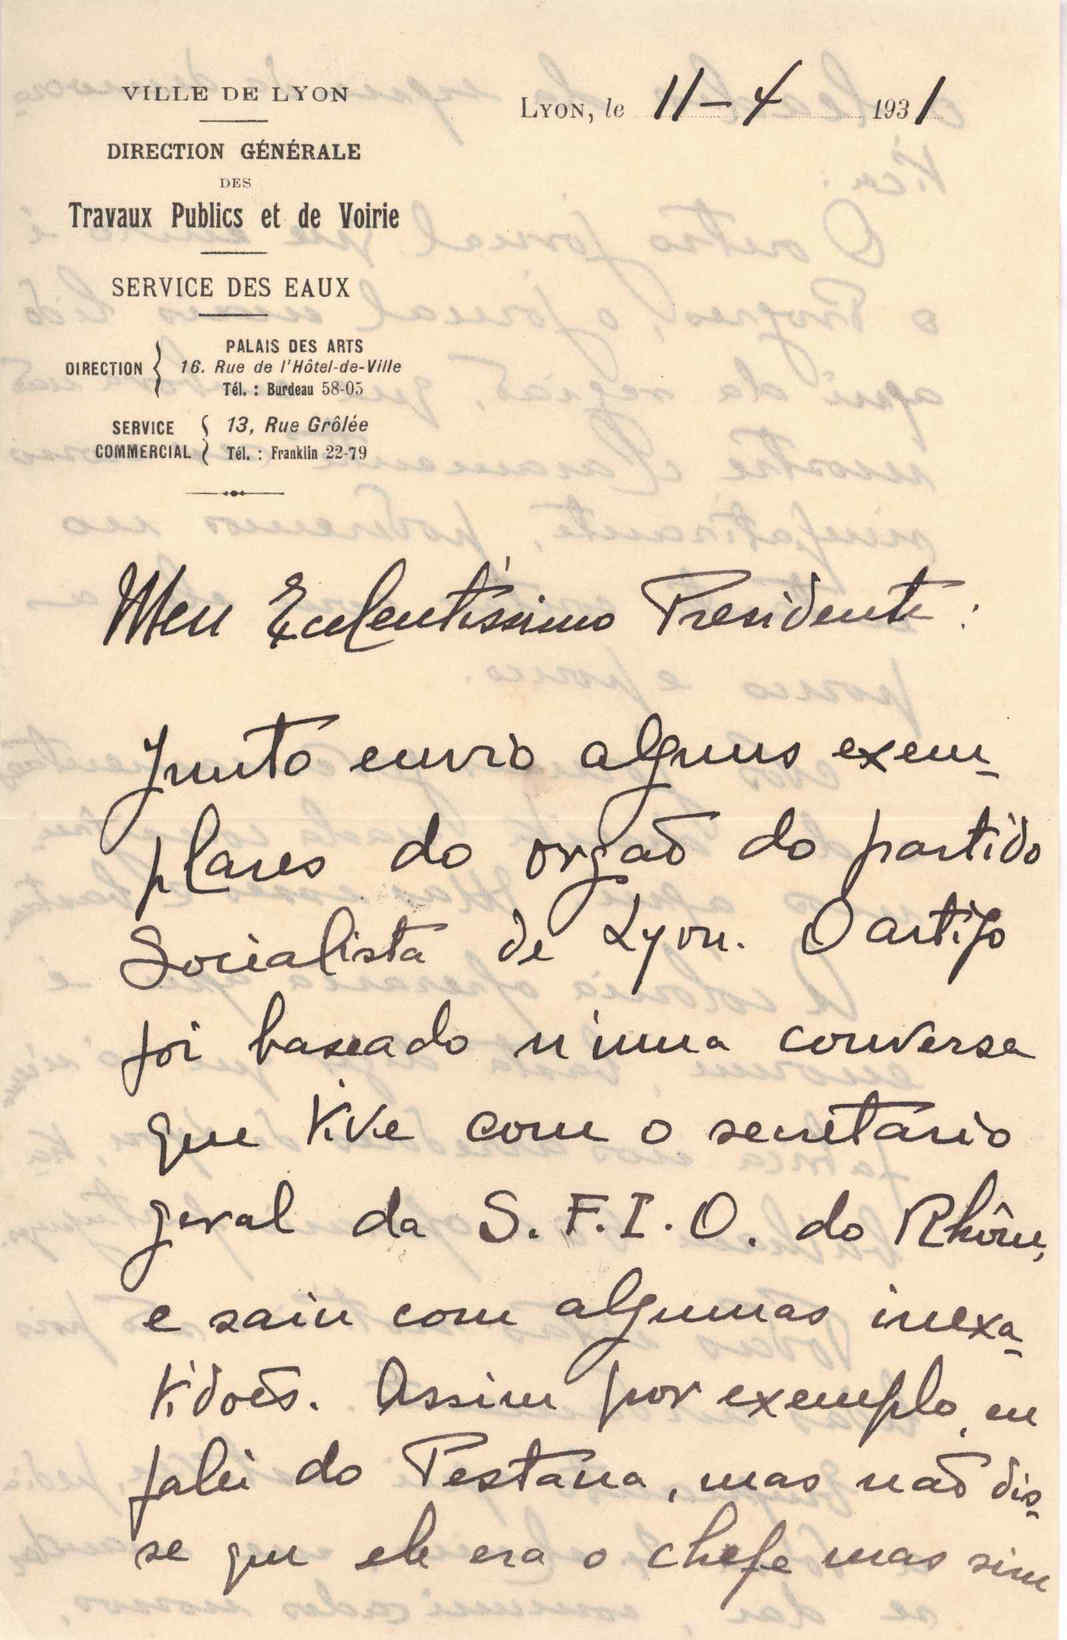 VILLE DE LYON
DIRECTION GÉNÉRALE
DES
Travaux Publics et de Voirie
SERVICE DES EAUX
DIRECTION { PALAIS DES ARTS
16. Rue de l'Hôtel-de-Ville
Tél. : Burdeau 58-05
SERVICE COMMERCIAL { 13, Rue Grôlée
Tél. : Franklin 22-79
LYON, le 11-4 1931
Meu Excelentíssimo Presidente :
Junto envio alguns exem-
plares do orgaõ do partido
Socialista de Lyon. O artigo
foi baseado n'uma conversa
que tive com o secretário
geral da S. F. I. O. do Rhône,
e saiu com algumas inexa-
tidoẽs. Assim por exemplo, eu
falei do Pestana, mas naõ dis-
se que ele era o chefe mas sim